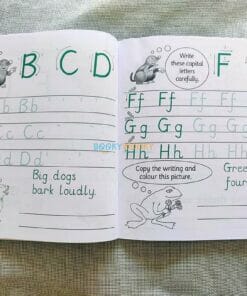 B C D
h Bb
c Cc
d Dd
Big dogs
bark loudly.
Write
these capital
letters
carefully.
F
Ff Ff Ff Ff
Gg Gg Gg Gg
Hh Hh Hh Hh
Copy the writing and
colour this picture.
Gree
four